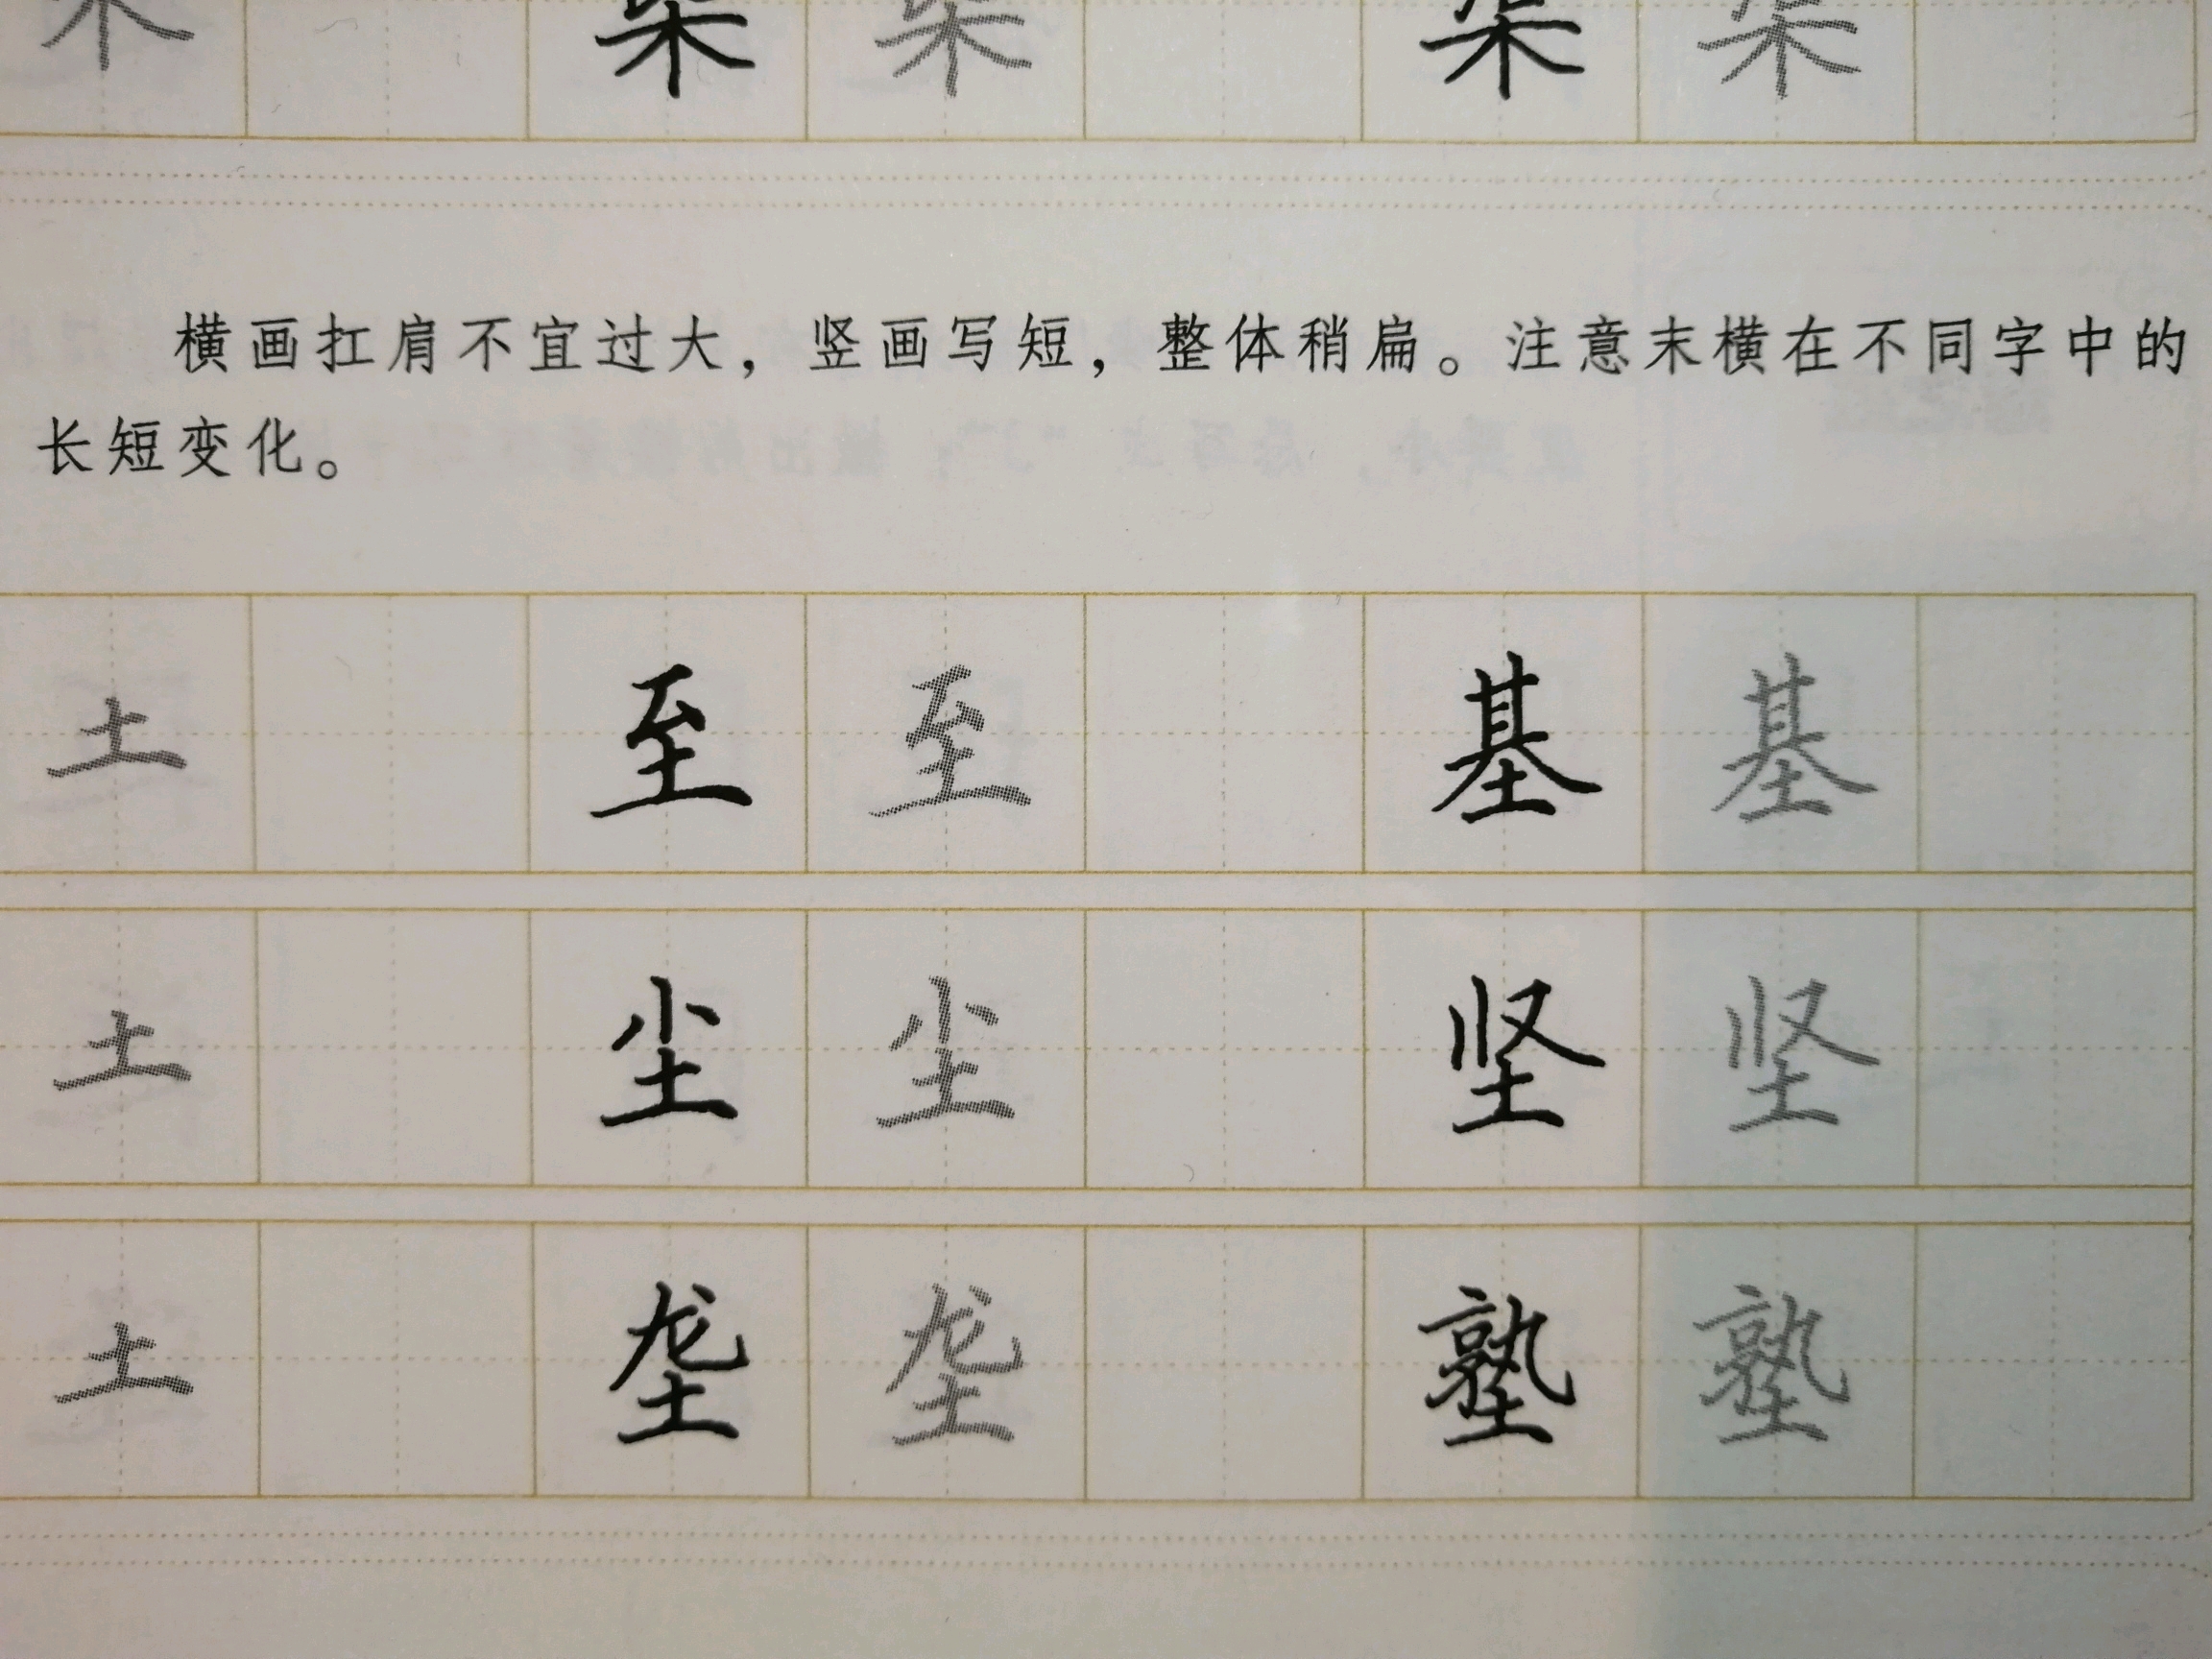 横画扛肩不宜过大，竖画写短，整体稍扁。注意末横在不同字中的
长短变化。
土 至 至 基 基
土 尘 尘 坚 坚
土 垄 垄 塾 塾